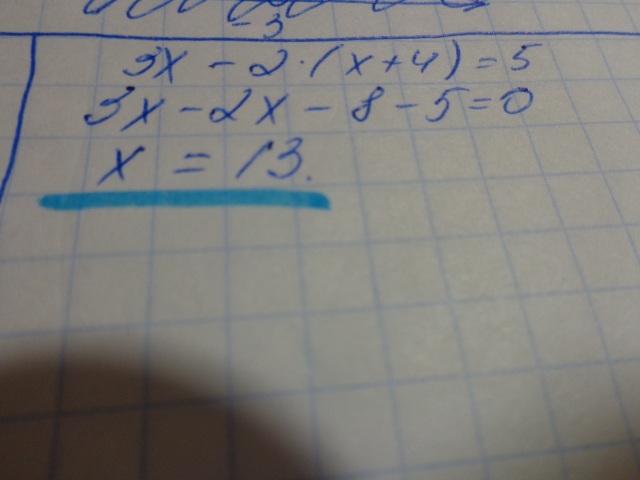 -3
3x - 2·(x+4) = 5
3x - 2x - 8 - 5 = 0
x = 13.